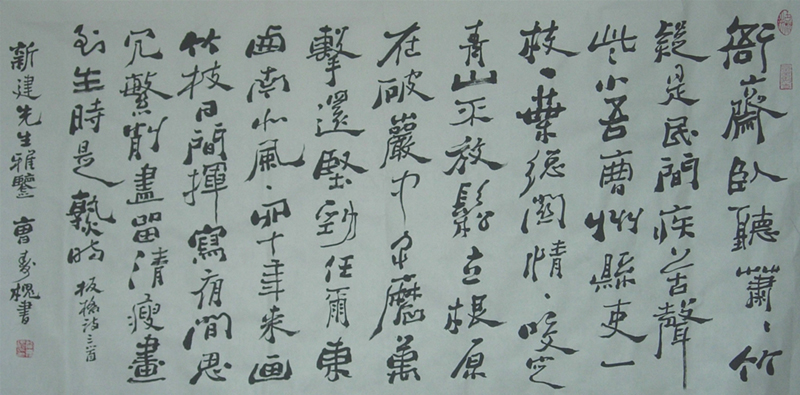 衙齋臥聽蕭、竹
疑是民間疾苦聲
些小吾曹州縣吏一
枝、葉總關情、咬定
青山不放鬆立根原
在破巖中千磨萬
擊還堅勁任爾東
西南北風、四十年來画
竹枝日間揮寫夜間思
冗繁削盡留清瘦畫
到生時是熟時 板橋詩三首
新建先生雅鑒 曹壽槐書